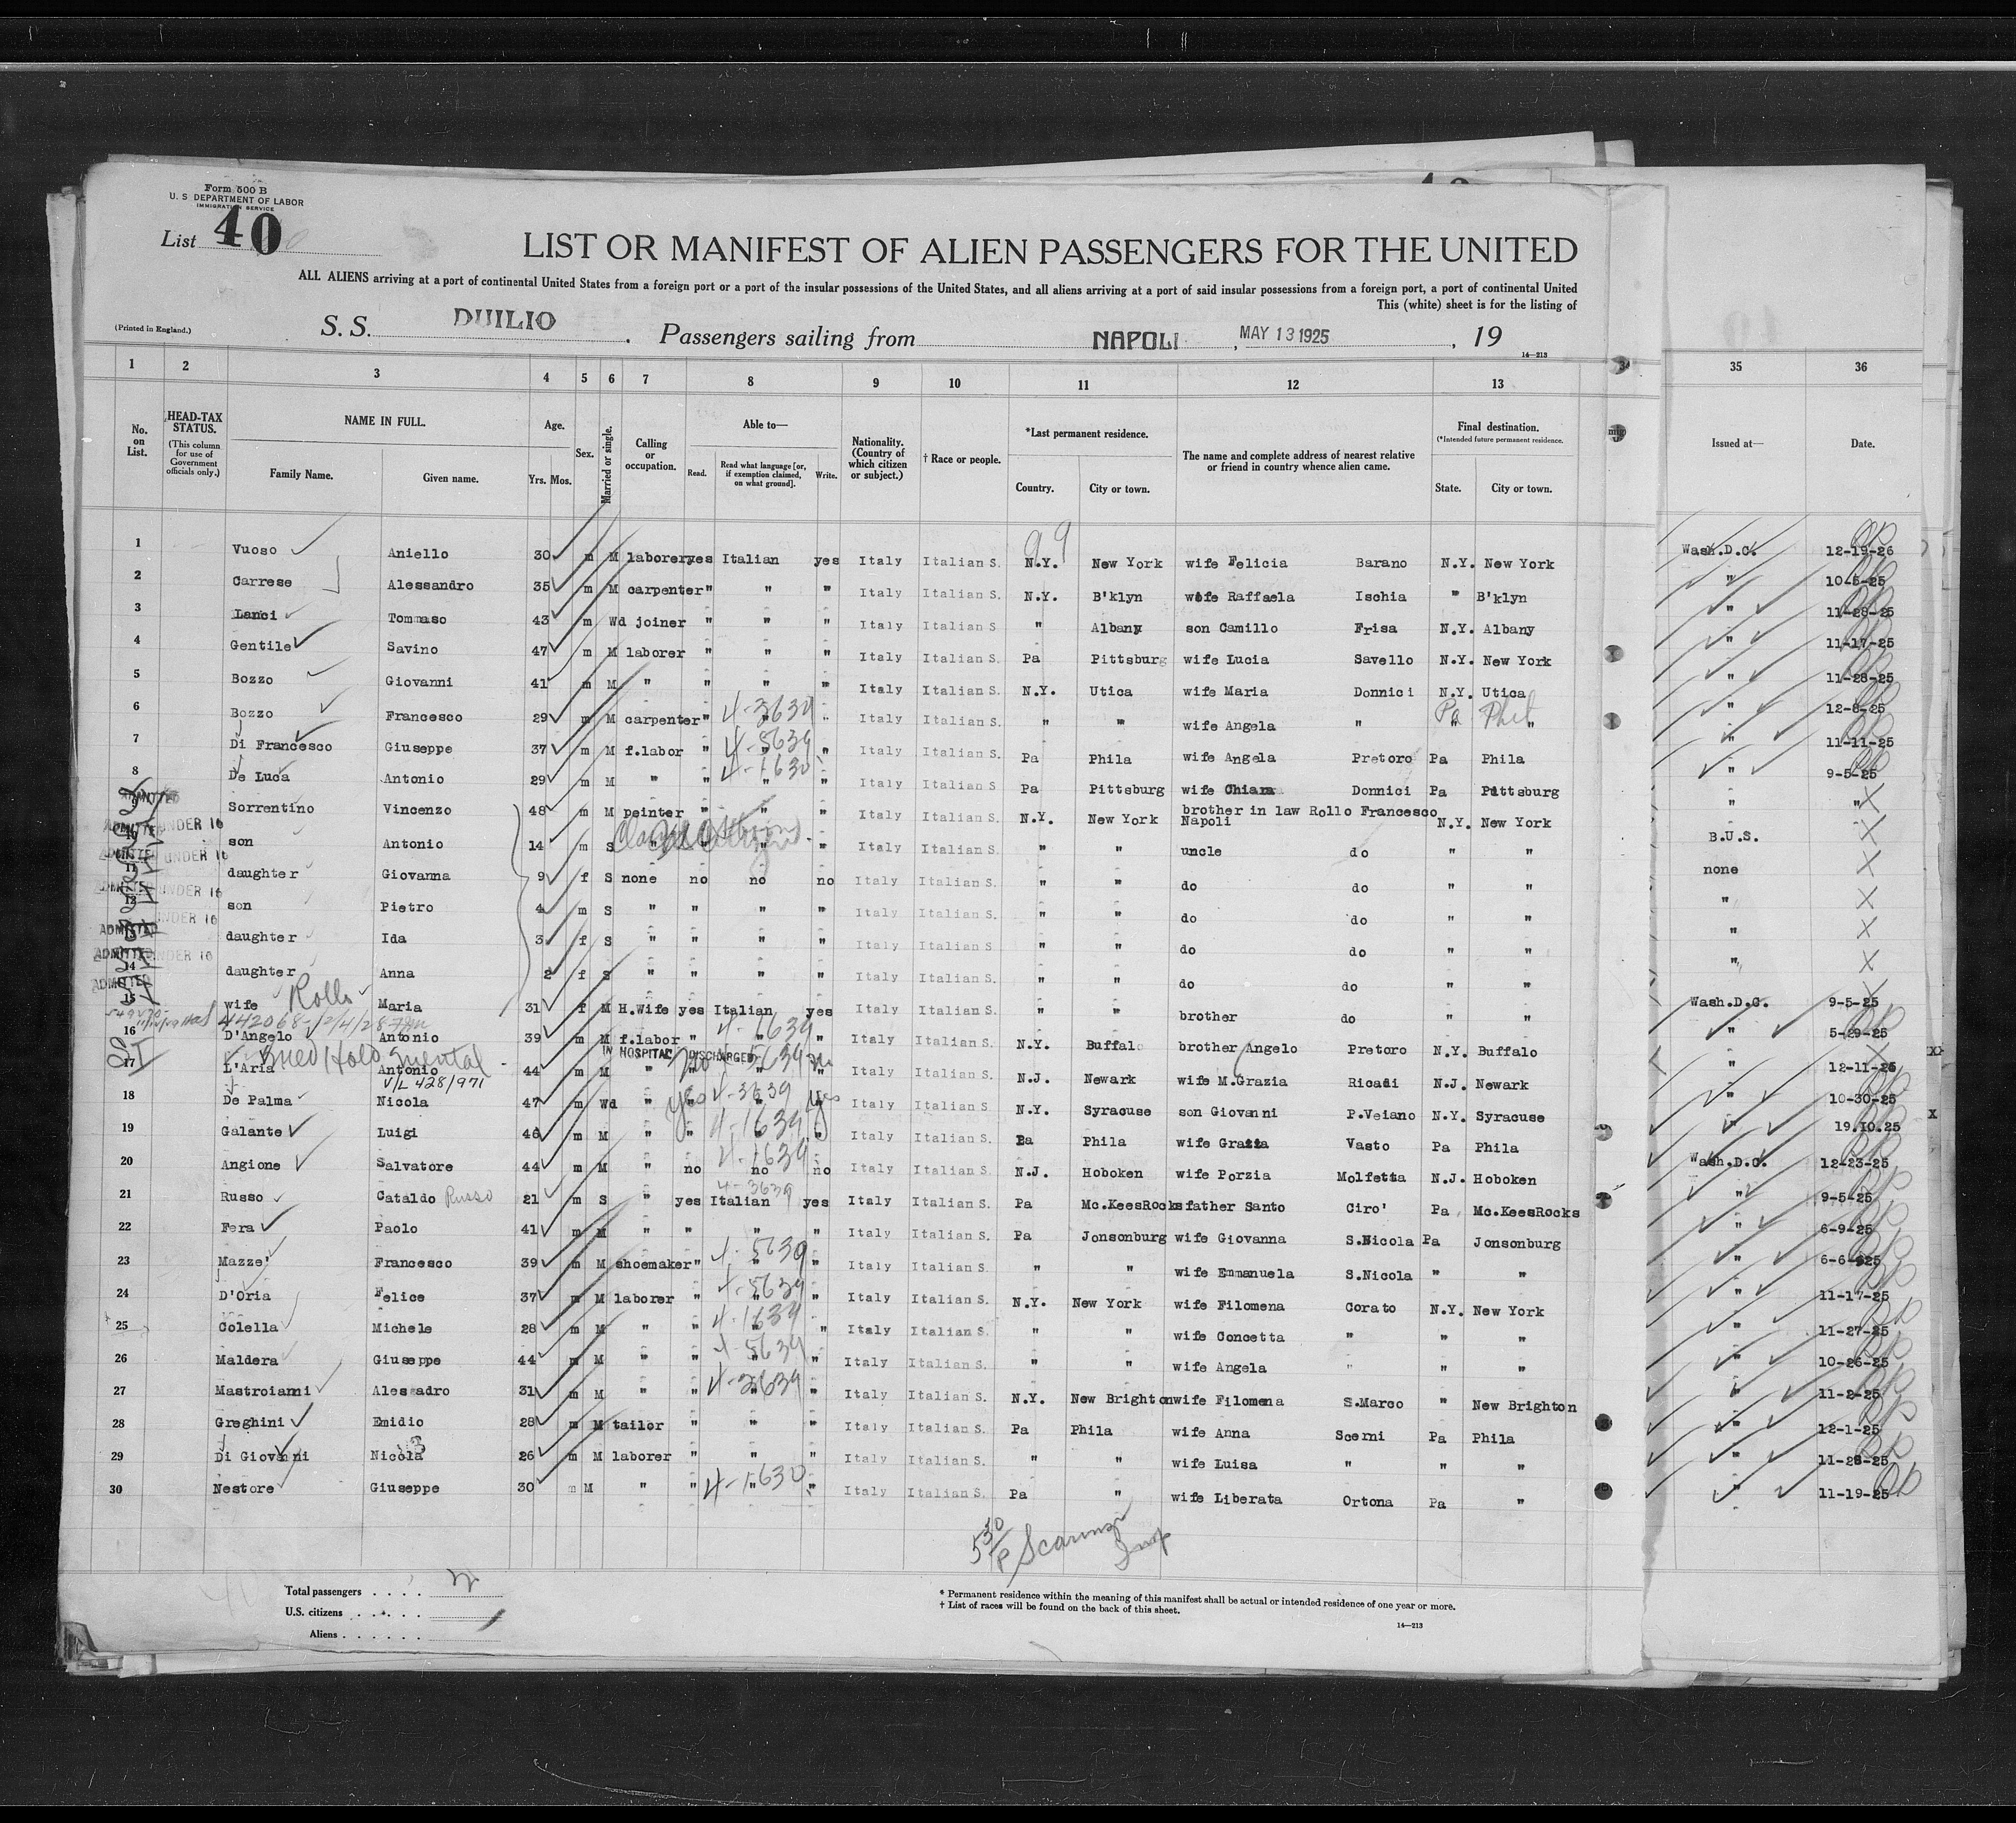 Form 500 B
U. S DEPARTMENT OF LABOR
IMMIGRATION SERVICE
List 40
LIST OR MANIFEST OF ALIEN PASSENGERS FOR THE UNITED
ALL ALIENS arriving at a port of continental United States from a foreign port or a port of the insular possessions of the United States, and all aliens arriving at a port of said insular possessions from a foreign port, a port of continental United
This (white) sheet is for the listing of
(Printed in England.)
S. S. DUILIO . Passengers sailing from NAPOLI , MAY 13 1925 , 19
14—213
1 2 3 4 5 6 7 8 9 10 11 12 13 34 35 36
No. on List.
HEAD-TAX STATUS.
(This column for use of Government officials only.)
NAME IN FULL.
Family Name. Given name.
Age.
Yrs. Mos.
Sex.
Married or single.
Calling or occupation.
Able to—
Read. Read what language [or, if exemption claimed, on what ground]. Write.
Nationality. (Country of which citizen or subject.)
† Race or people.
*Last permanent residence.
Country. City or town.
The name and complete address of nearest relative or friend in country whence alien came.
Final destination.
(*Intended future permanent residence.
State. City or town.
Issued at— Date.
99
1 Vuoso Aniello 30 m M laborer yes Italian yes Italy Italian S. N.Y. New York wife Felicia Barano N.Y. New York Wash.D.C. 12-19-26
2 Carrese Alessandro 35 m M carpenter " " " Italy Italian S. N.Y. B'klyn wife Raffaela Ischia " B'klyn " 10-5-25
3 Lanci Tommaso 43 m Wd joiner " " " Italy Italian S " Albany son Camillo Frisa N.Y. Albany " 11-28-25
4 Gentile Savino 47 m M laborer " " " Italy Italian S. Pa Pittsburg wife Lucia Savello N.Y. New York " 11-17-25
5 Bozzo Giovanni 41 m M " " " " Italy Italian S. N.Y. Utica wife Maria Donnici N.Y. Utica " 11-28-25
6 Bozzo Francesco 29 m M carpenter " 4-3639 " " Italy Italian S. " " wife Angela " Pa Phil " " " 12-8-25
7 Di Francesco Giuseppe 37 m M f.labor " 4-5639 " " Italy Italian S. Pa Phila wife Angela Pretoro Pa Phila " 11-11-25
8 De Luca Antonio 29 m M " " 4-1630 " " Italy Italian S. Pa Pittsburg wife Chiara Donnici Pa Pittsburg " 9-5-25
ADMITTED 9 Sorrentino Vincenzo 48 m M peinter " " " Italy Italian S. N.Y. New York brother in law Rollo Francesco Napoli N.Y. New York " " X
ADMITTED UNDER 16 10 son Antonio 14 m S " " " Italy Italian S. " " uncle do " " B.U.S. X
ADMITTED UNDER 16 11 daughter Giovanna 9 f S none no no no Italy Italian S. " " do do " " none X
ADMITTED UNDER 16 12 son Pietro 4 m S " " " " Italy Italian S. " " do do " " " X
ADMITTED UNDER 16 13 daughter Ida 3 f S " " " " Italy Italian S " " do do " " " X
ADMITTED UNDER 16 14 daughter Anna 2 f S " " " " Italy Italian S. " " do do " " " X
ADMITTED 15 wife Rollo Maria 31 f M H.Wife yes Italian yes Italy Italian S. " " brother do " " Wash.D.C. 9-5-25
442068-12/4/28
16 D'Angelo Antonio 39 m M f.labor " 4-1639 " " Italy Italian S. N.Y. Buffalo brother Angelo Pretoro N.Y. Buffalo " 5-29-25
IN HOSPITAL DISCHARGED
SI Med Hold Mental
17 L'Aria Antonio 44 m M " no 5639 no Italy Italian S. N.J. Newark wife M.Grazia Ricadi N.J. Newark " 12-11-25 X
V/L 428/971
18 De Palma Nicola 47 m Wd " yes 4-3639 " yes Italy Italian S. N.Y. Syracuse son Giovanni P.Veiano N.Y. Syracuse " 10-30-25
19 Galante Luigi 46 m M " " 4-1639 " " Italy Italian S. Pa Phila wife Grazia Vasto Pa Phila 19.10.25 X
20 Angione Salvatore 44 m M " no 4-1639 no no Italy Italian S. N.J. Hoboken wife Porzia Molfetta N.J. Hoboken Wash.D.C. 12-23-25
21 Russo Cataldo Russo 21 m S " yes 4-3639 Italian yes Italy Italian S. Pa Mc.KeesRocks father Santo Ciro' Pa Mc.KeesRocks " 9-5-25
22 Fera Paolo 41 m M " " " " Italy Italian S. Pa Jonsonburg wife Giovanna S.Nicola Pa Jonsonburg " 6-9-25
23 Mazze' Francesco 39 m M shoemaker " 4-5639 " " Italy Italian S. " " wife Emmanuela S.Nicola " " " 6-6-925
24 D'Oria Felice 37 m M laborer " 4-5639 " " Italy Italian S. N.Y. New York wife Filomena Corato N.Y. New York " 11-17-25
25 Colella Michele 28 m M " " 4-1639 " Italy Italian S. " " wife Concetta " " " " 11-27-25
26 Maldera Giuseppe 44 m M " " 4-5639 " " Italy Italian S. " " wife Angela " " " " 10-26-25
27 Mastroianni Alessadro 31 m M " " 4-3639 " " Italy Italian S. N.Y. New Brighton wife Filomena S.Marco " New Brighton " 11-2-25
28 Greghini Emidio 28 m M tailor " " " Italy Italian S. Pa Phila wife Anna Scerni Pa Phila " 12-1-25
29 Di Giovanni Nicola 26 m M laborer " " " Italy Italian S. " " wife Luisa " " " " 11-28-25
30 Nestore Giuseppe 30 m M " " 4-1630 " " Italy Italian S. Pa " wife Liberata Ortona Pa " " 11-19-25
Total passengers . . . .
U.S. citizens . . . . .
Aliens . . . . . .
* Permanent residence within the meaning of this manifest shall be actual or intended residence of one year or more.
† List of races will be found on the back of this sheet.
14—213